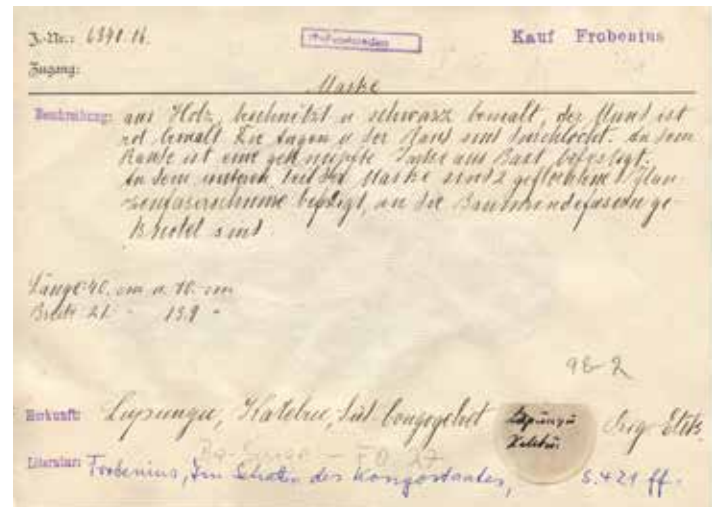 J.-Nr.: 6840.16.
Kauf Frobenius
Zugang:
Maske
Beschreibung: aus Holz, beschnitzt u schwarz bemalt, der Mund ist
rot bemalt Die Augen u der Mund sind durchlocht. An dem
Rande ist eine geknüpfte Jacke aus Bast befestigt.
An dem unteren Teil der Maske sind 2 geflochtene Pflan-
zenfaserschnüre befestigt, an die Baumrindefasern ge-
knotet sind
Länge 40. cm u. 10. cm
Breite 21 " 13.9 "
98-2
Herkunft: Lupungu, Katebue, Süd-Congogebiet
Lupungu
Katebue.
Orig. Etik.
Literatur: Frobenius, Im Schatten des Kongostaates, S.421 ff.